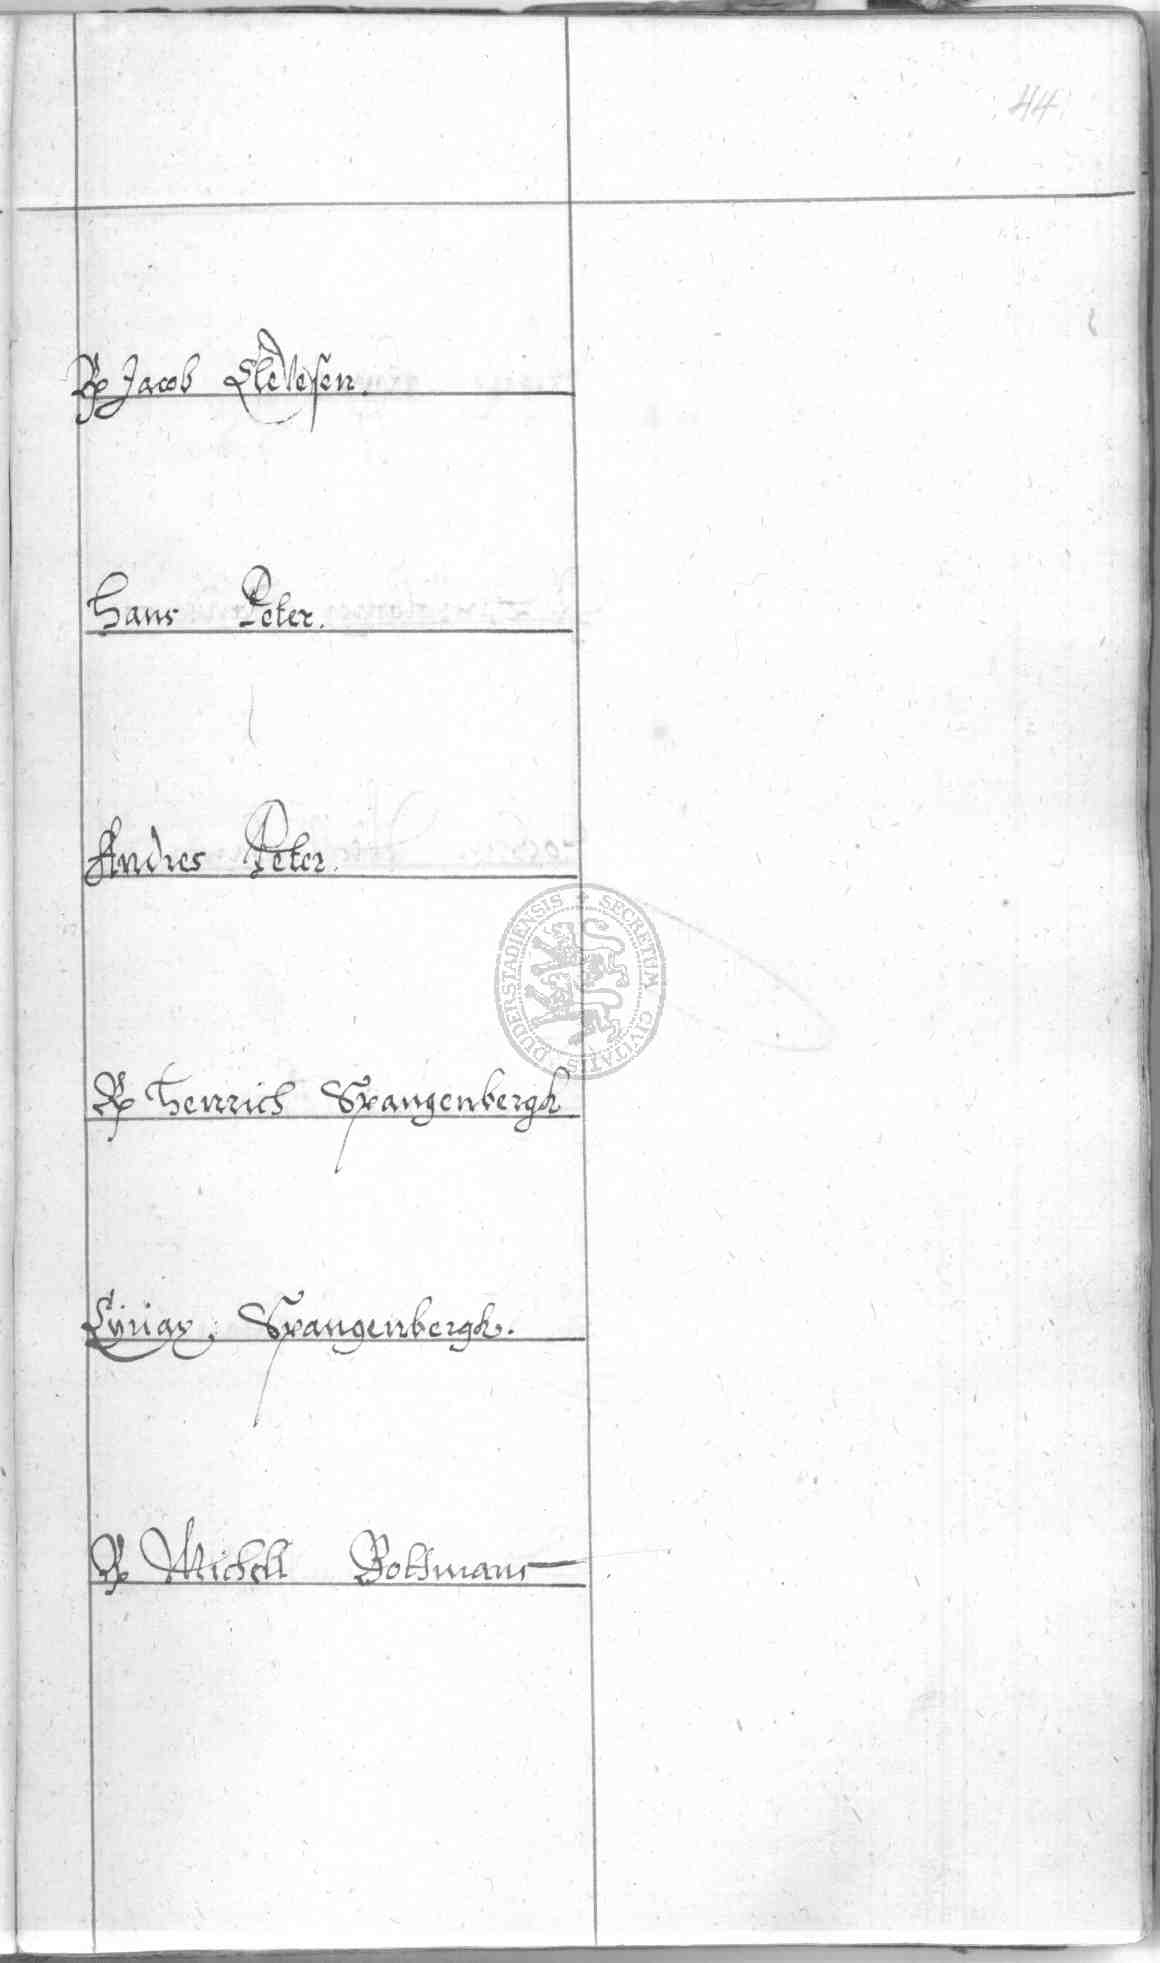 44
R Jacob
Hans Peter.
Andres Peter.
R Henrich Spangenbergk
Ciriax. Spangenbergk.
R Michell Bollmann
SECRETUM CIVITATIS DUDERSTADIENSIS